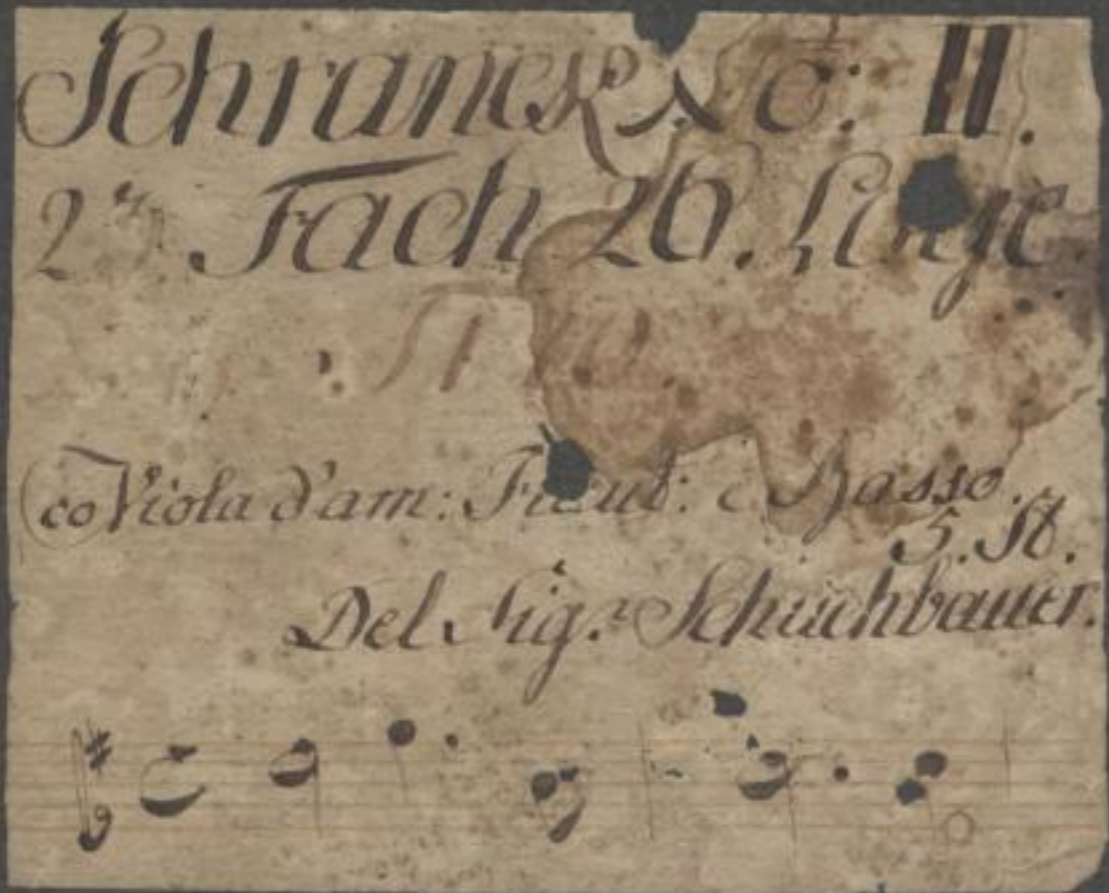 Schranck No: II.
2.r Fach 26. Lage.
(co Viola d'am: Flaut: e Basso.
5. St.
Del Sig.r Schuchbauer.